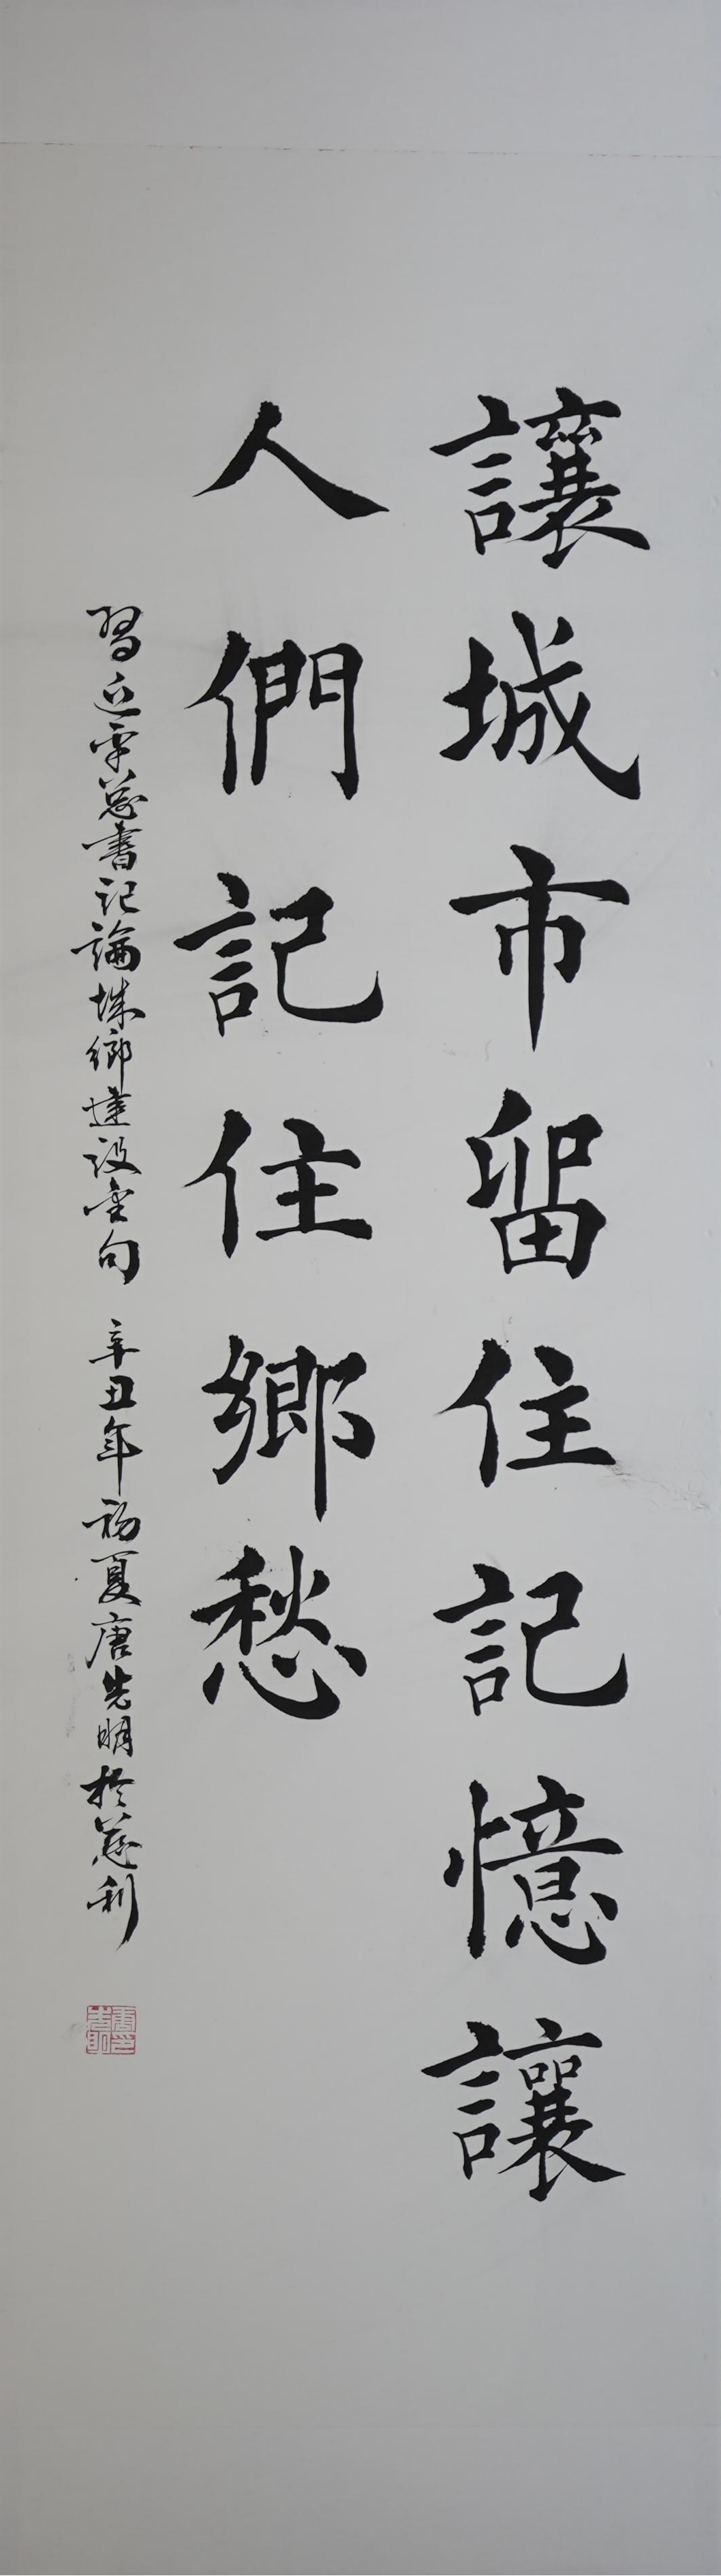 讓城市留住記憶讓
人們記住鄉愁
習近平總書記論城鄉建設金句 辛丑年初夏唐先明於慈利